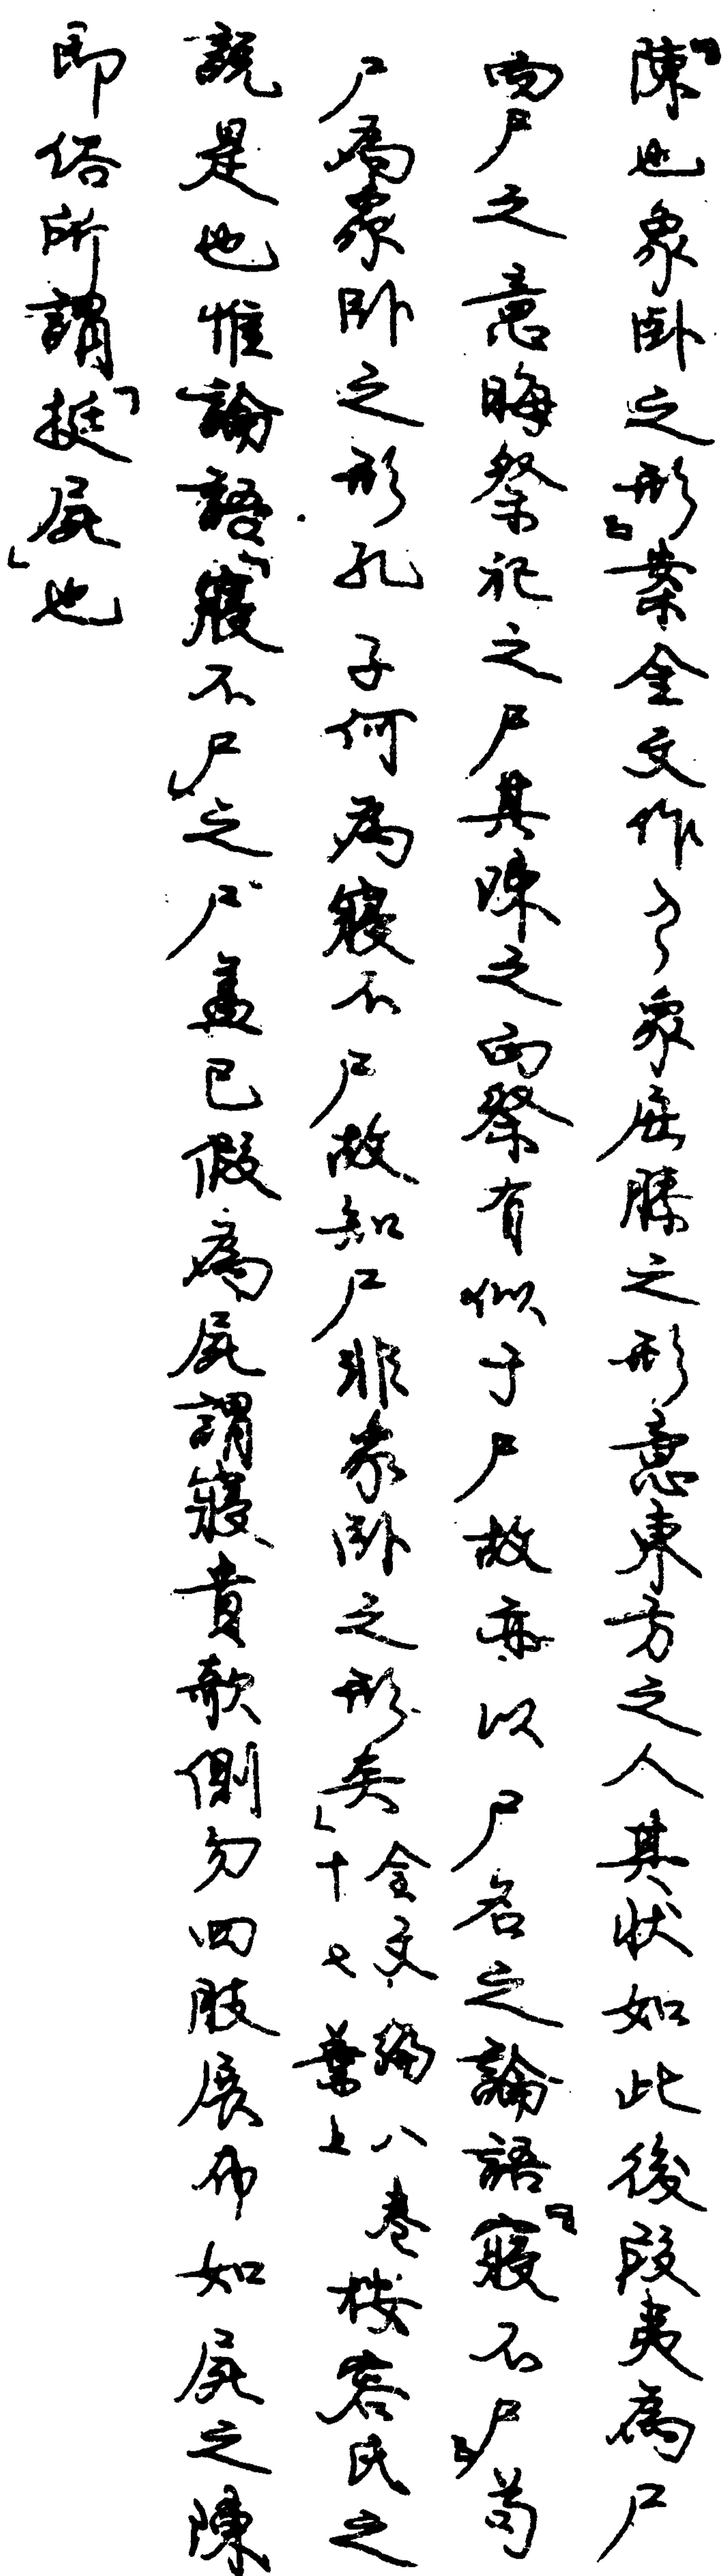 『陳也象臥之形』案金文作𠂣象屈膝之形意東方之人其狀如此後段夷為尸
而尸之意晦祭祀之尸其陳之而祭有似于尸故亦以尸名之論語『寢不尸』苟
尸為象臥之形孔子何為寢不尸故知尸非象臥之形矣」金文編八卷十七葉上按容氏之
說是也惟論語「寢不尸」之尸蓋已假為屍謂寢貴欹側勿四肢展布如屍之陳
即俗所謂「挺屍」也